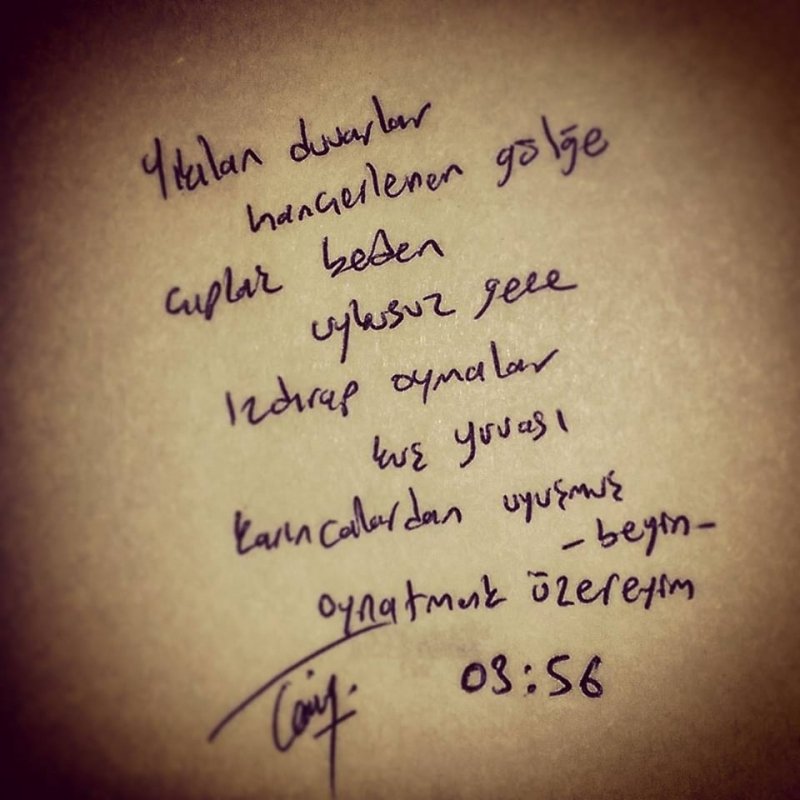 Yıkılan duvarlar
hançerlenen gölge
çıplak beden
uykusuz gece
Izdırap oymalar
kuş yuvası
karıncalardan uyuşmuş
- beyin -
oynatmak üzereyim
03:56